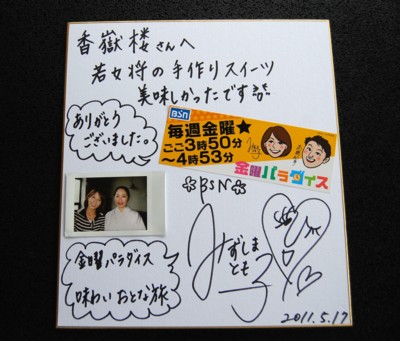 香嶽楼さんへ
若女将の手作りスイーツ
美味しかったです
ありがとう
ございました。
BSN
毎週金曜★
ごご3時50分
～4時53分
金曜パラダイス
BSN
みずしま
とも子
金曜パラダイス
味わいおとな旅
2011.5.17